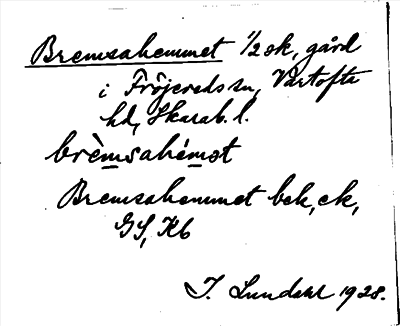 Bremsahemmet 1/2 sk, gård
i Fröjereds sn, Vartofta
hd, Skarab. l.
brèmsahémət
Bremsahemmet bek, ek,
GS, Kb
I. Lundahl 1928.